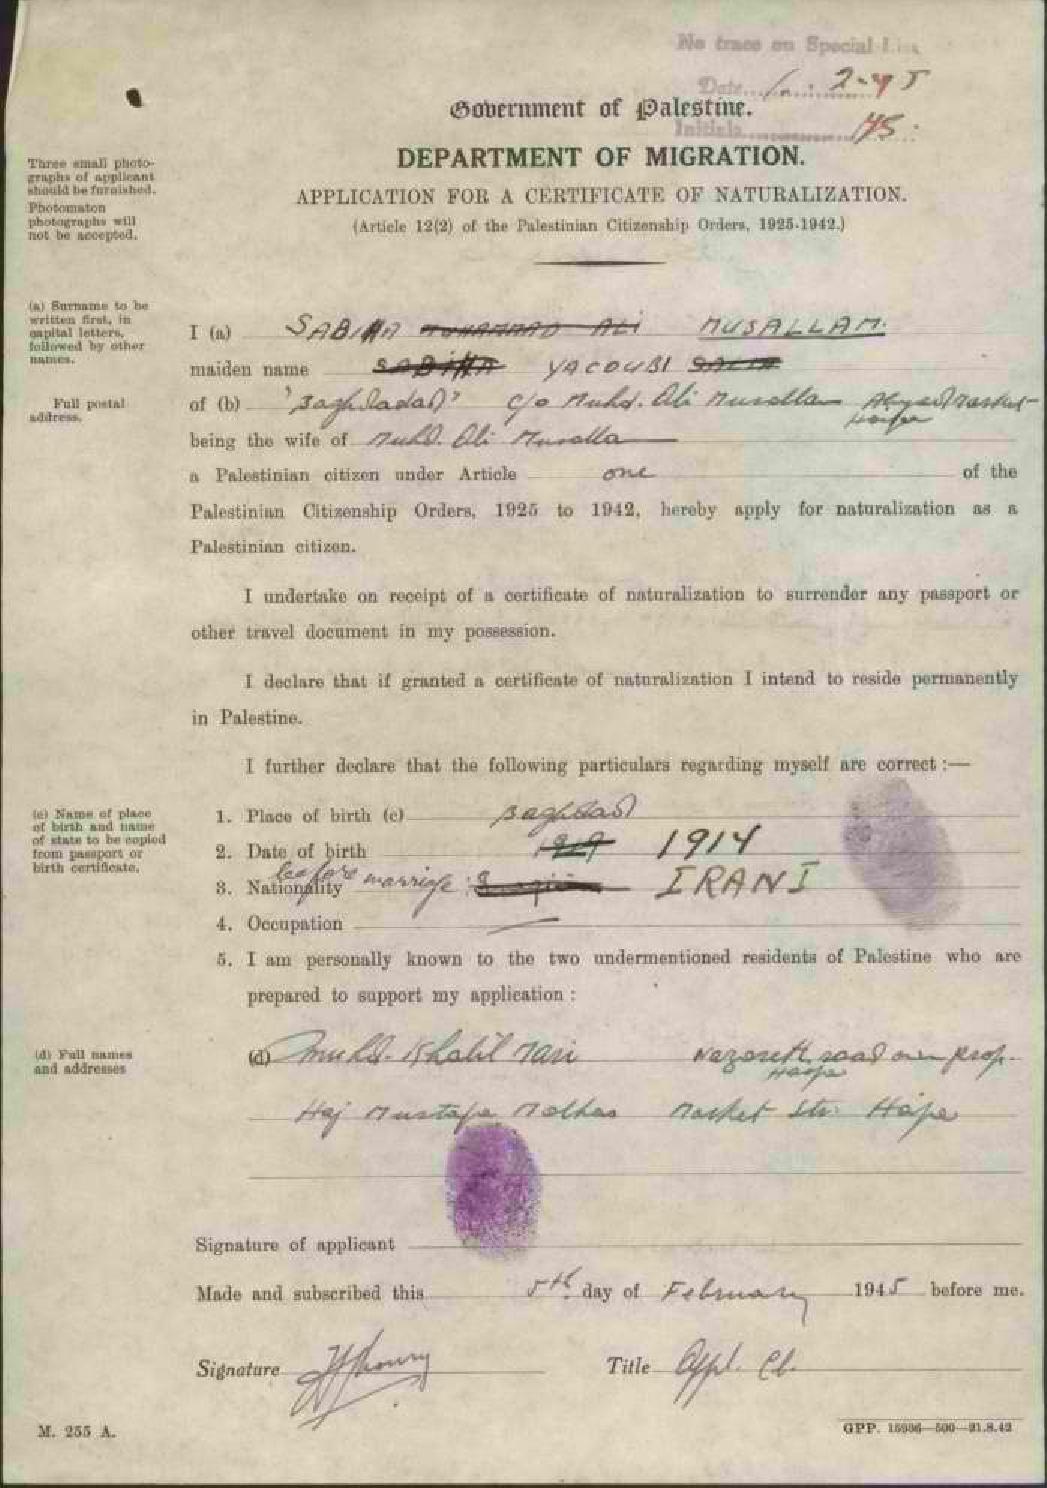 No trace on Special List
Date 2-45
Initials
Government of Palestine.
DEPARTMENT OF MIGRATION.
APPLICATION FOR A CERTIFICATE OF NATURALIZATION.
(Article 12(2) of the Palestinian Citizenship Orders, 1925-1942.)
Three small photo-
graphs of applicant
should be furnished.
Photomaton
photographs will
not be accepted.
(a) Surname to be
written first, in
capital letters,
followed by other
names.
I (a) SABIHA MUHAMMAD ALI MUSALLAM.
maiden name SABIHA YACOUBI SALIM
Full postal
address.
of (b) "Baghdadad" c/o Muhd. Ali Musallam Market Haifa
being the wife of Muhd. Ali Musallam
a Palestinian citizen under Article one of the
Palestinian Citizenship Orders, 1925 to 1942, hereby apply for naturalization as a
Palestinian citizen.
I undertake on receipt of a certificate of naturalization to surrender any passport or
other travel document in my possession.
I declare that if granted a certificate of naturalization I intend to reside permanently
in Palestine.
I further declare that the following particulars regarding myself are correct :—
(c) Name of place
of birth and name
of state to be copied
from passport or
birth certificate.
1. Place of birth (c) Baghdad
2. Date of birth 1919 1914
3. Nationality before marriage : IRANI
4. Occupation —
5. I am personally known to the two undermentioned residents of Palestine who are
prepared to support my application :
(d) Full names
and addresses
(d) Muhd. Khalil Mari Nazareth road own prop. Haifa
Haj Mustafa Market Str. Haifa
Signature of applicant
Made and subscribed this 5th day of February 1945 before me.
Signature Title Appl. Cl.
M. 255 A.
GPP. 15936—500—21.8.42